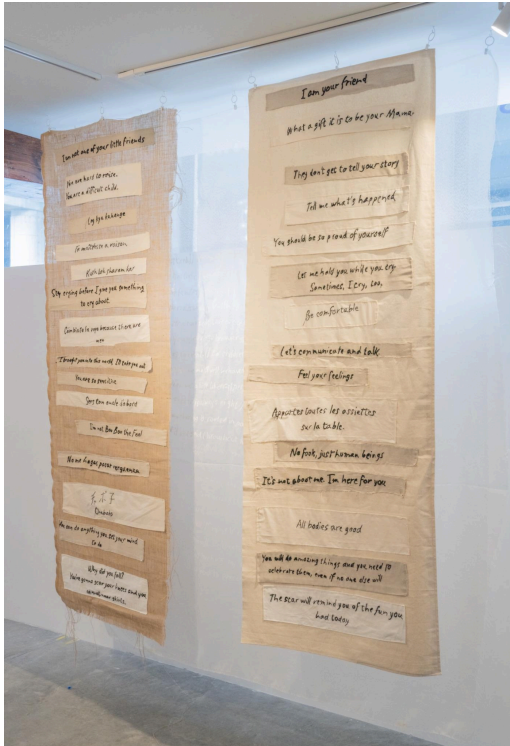 I'm not one of your little friends
You are hard to raise.
You are a difficult child.
Log kya kahenge
Tu maltresse a maison.
Kuch toh sharam kar
Stop crying before I give you something
to cry about.
Cámbiate la ropa because there are
men
I brought you into this world, I'll take you out
You are so sensitive
I'm not Boo Boo the Fool
No me hagas pasar vergüenza
乖不乖
You can do anything you set your mind
to do
Why did you fall?
You're gonna scar your knees and you
I am your friend
What a gift it is to be your Mama.
They don't get to tell your story
Tell me what's happened
You should be so proud of yourself
Let me hold you while you cry.
Sometimes, I cry, too,
Be comfortable
Let's communicate and talk
Feel your feelings
Apportes toutes les assiettes
sur la table.
No fook, just human beings
It's not about me. I'm here for you
All bodies are good
You will do amazing things and you need to
celebrate them, even if no one else will
The scar will remind you of the fun you
had today